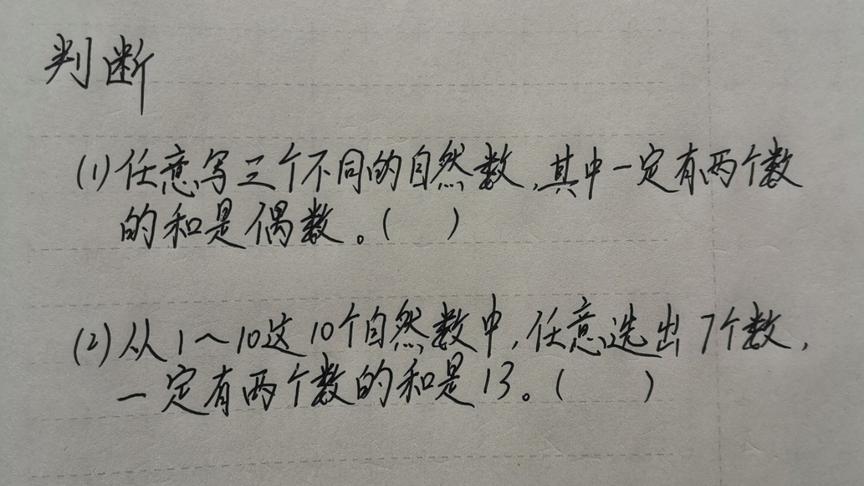 判断
(1)任意写三个不同的自然数,其中一定有两个数
的和是偶数。(  )
(2)从1～10这10个自然数中,任意选出7个数,
一定有两个数的和是13。(  )